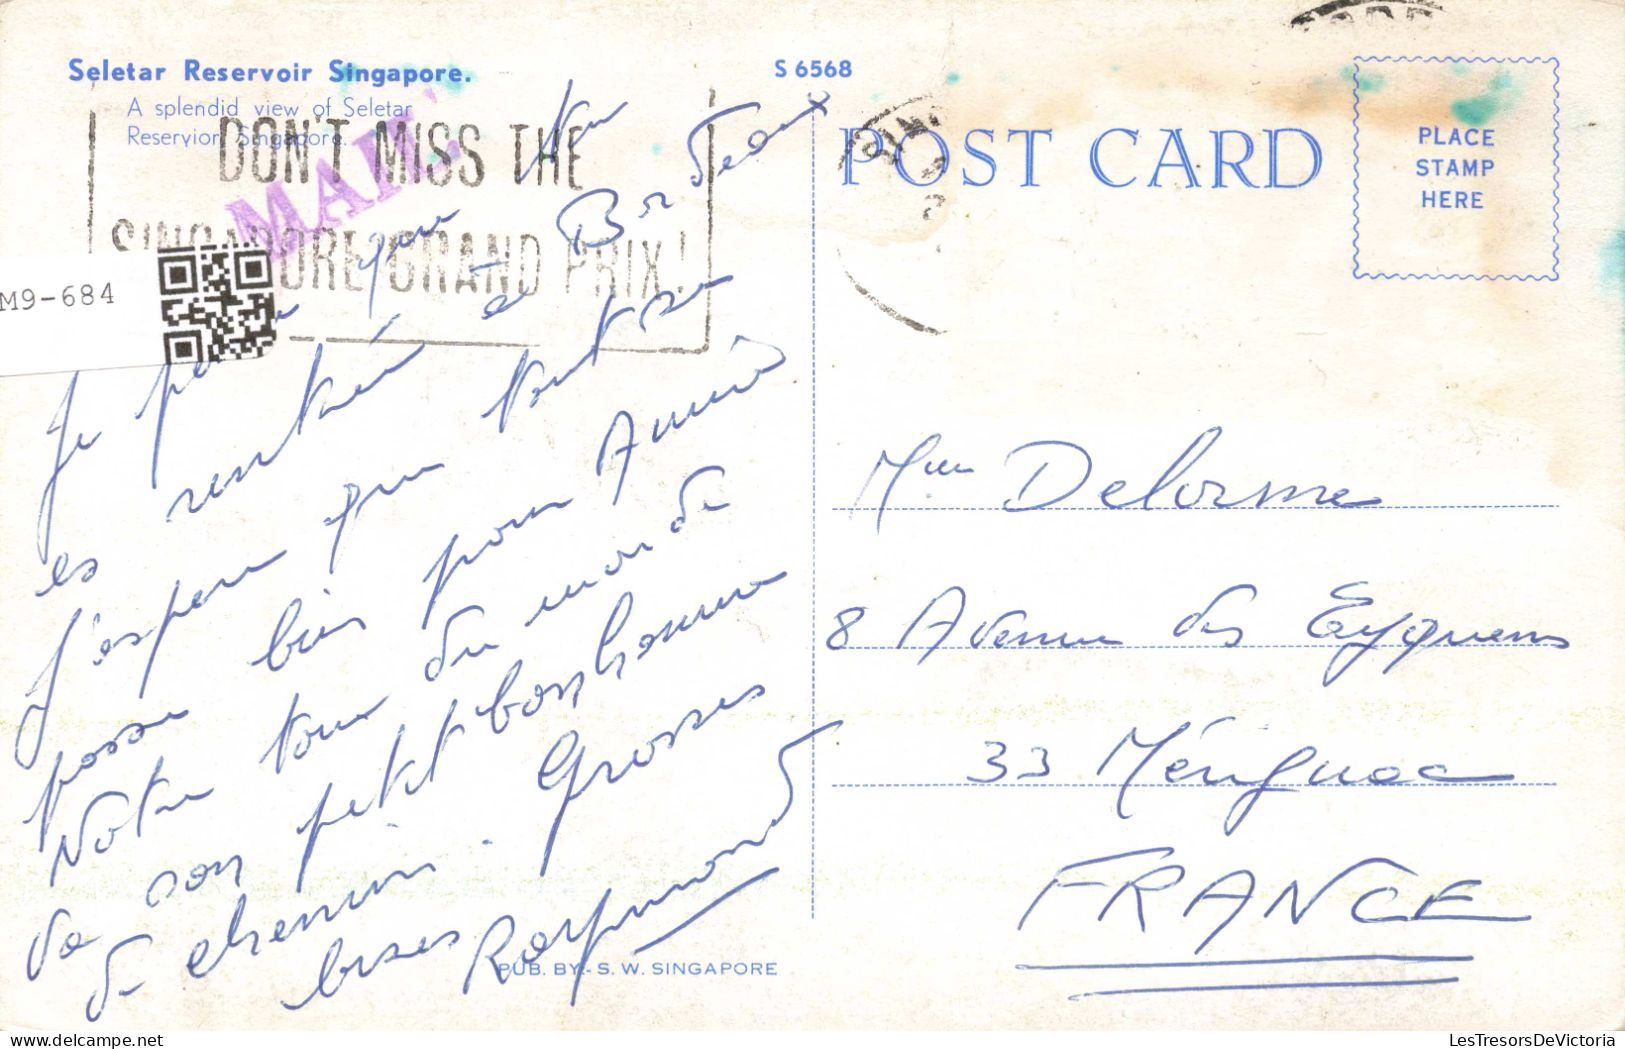 Seletar Reservoir Singapore.
A splendid view of Seletar
Reservior, Singapore.
S 6568
POST CARD
PLACE
STAMP
HERE
DON'T MISS THE
SINGAPORE GRAND PRIX!
M9-684
Je que tu
es rentrée à Bordeaux
J'espère que tout se
passe bien pour Annie
Notre tour du monde
va son petit bonhomme
de chemin. Grosses
bises Raymond
Mme Delorme
8 Avenue des Eyquems
33 Mérignac
FRANCE
PUB. BY:- S. W. SINGAPORE
LesTresorsDeVictoria.com